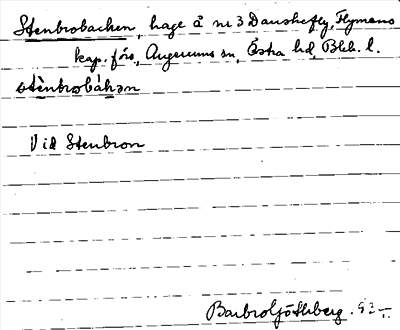 Stenbrobacken, hage å nr 3 Danskefly, Flymens
kap. förs, Augerums sn, Östra hd, Blek. l.
stènbrobákən
Vid Stenbron
Barbro Göthberg.